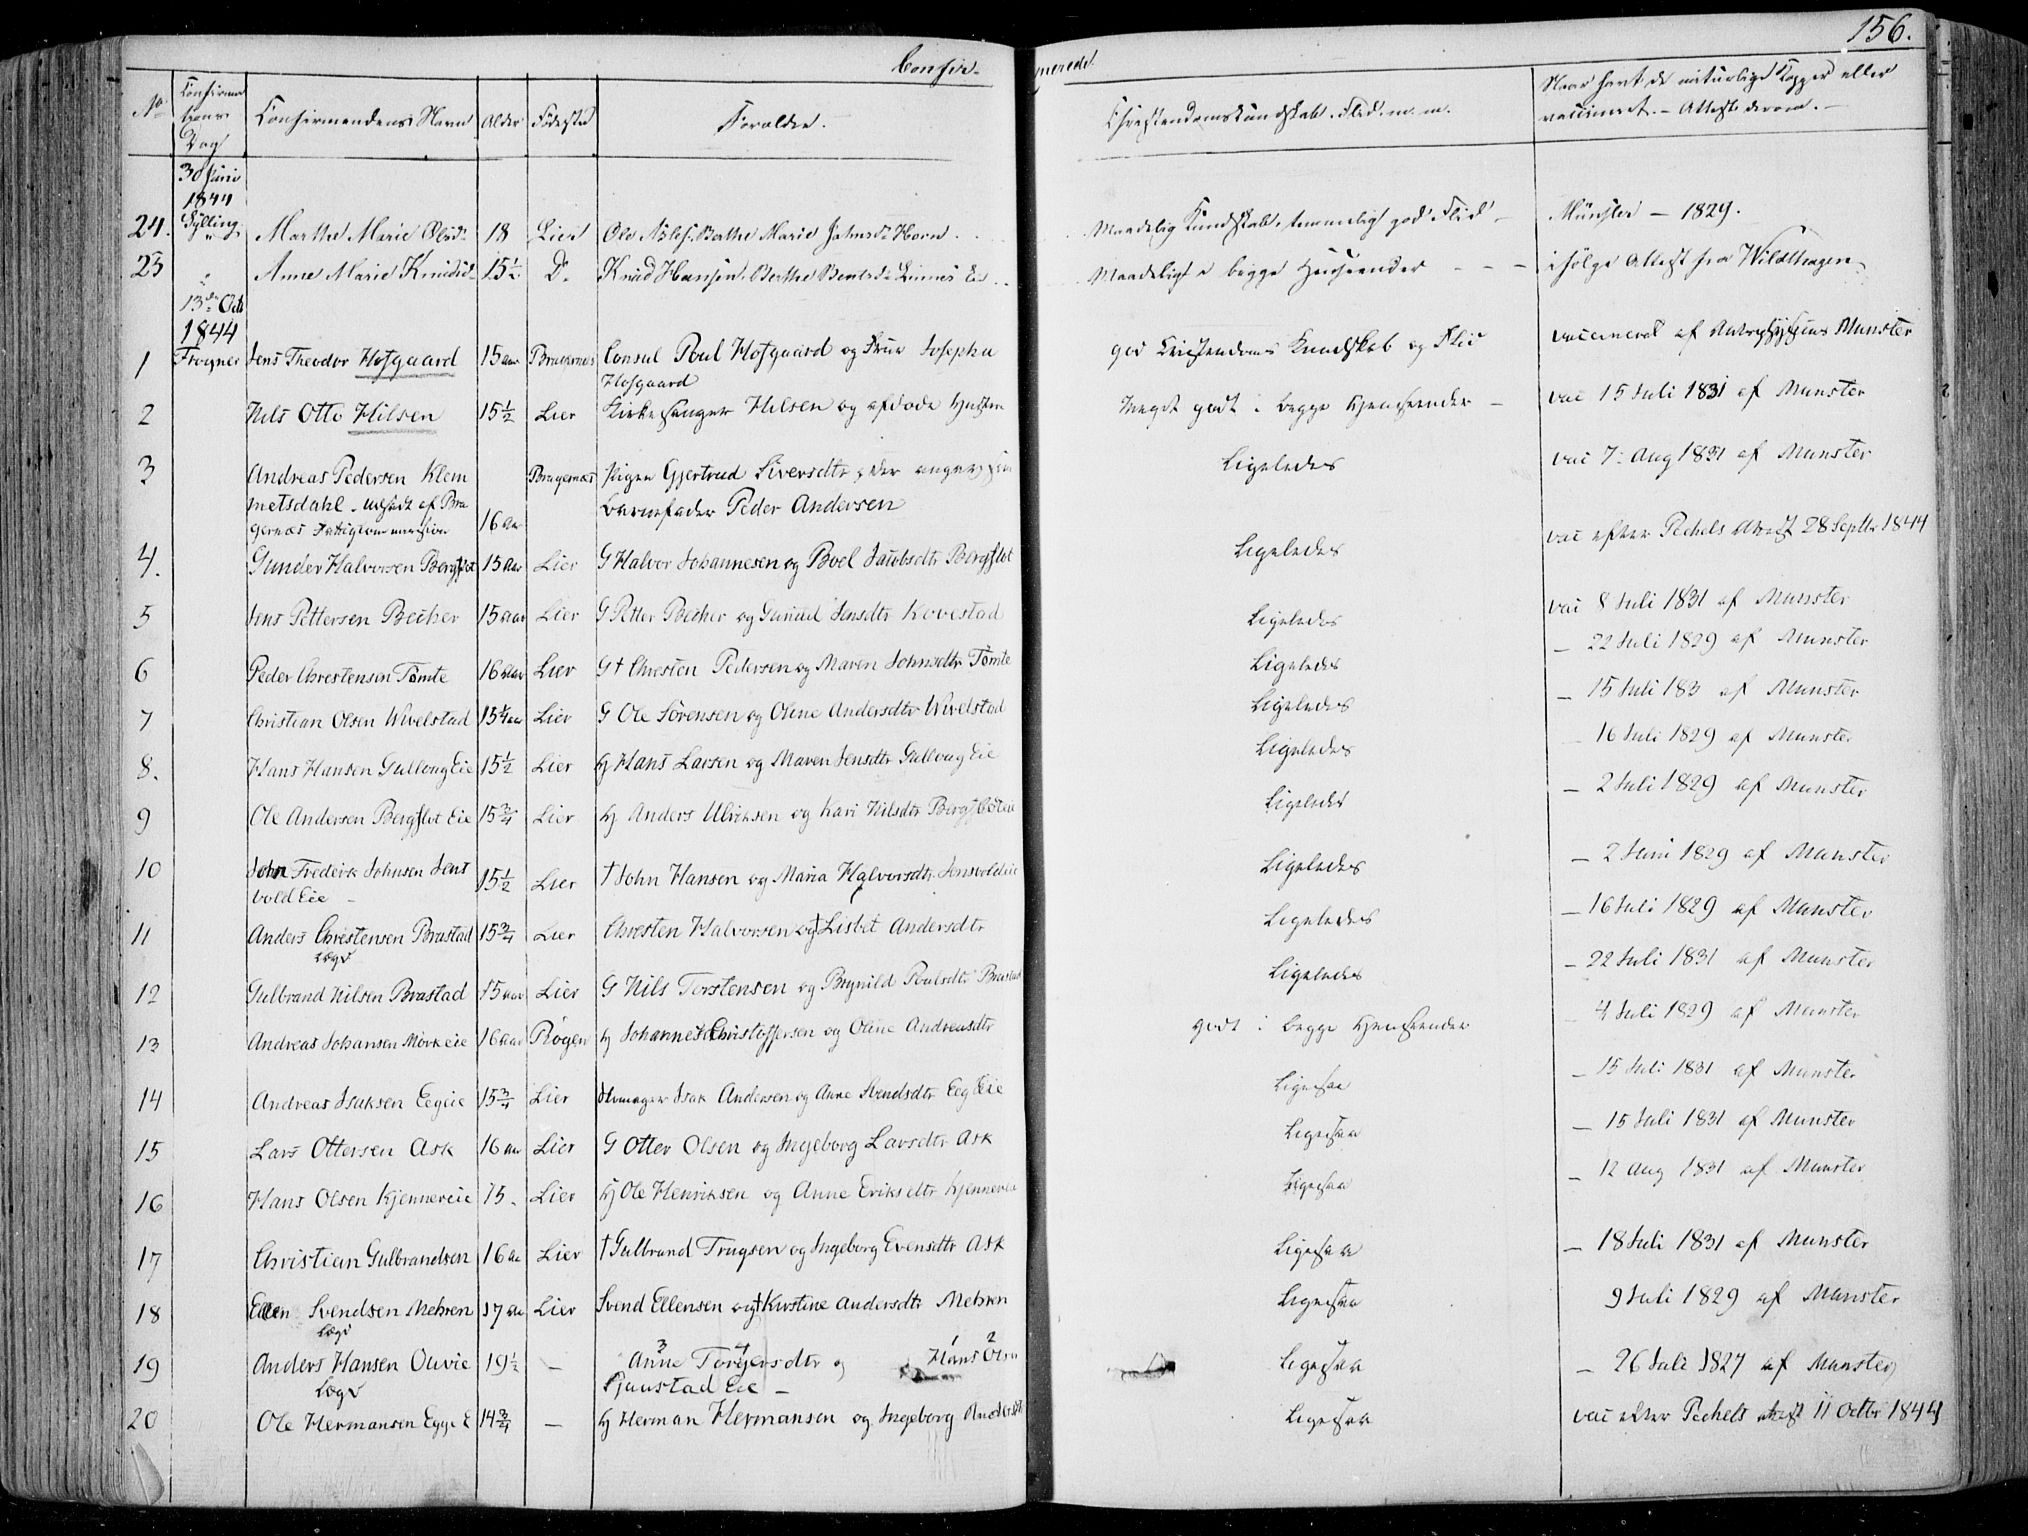 156.
Confir-
merede.
No Confirma
tions- Confirmandens Navn Alder Fødested Forældre. Christendomskundskab, Flid m. m. Naar havt de naturlige Kopper eller
Dag vaccineret. - Attest derom. -
30 Juni
1844
24. Sylling Marthe Marie Olsd. 18 Lier Ole Nilss. Berthe Marie Johnsd. Horn. Maadelig Kundskab, temmeligt god Flid Münster - 1829.
25 " Anne Marie Knudsd. 15½ Do. Knud Hansen, Berthe Linnes Eie Maadeligt i begge Henseender - - - ifølge Attest fra Wildthagen
13de Octb
1844
1 Frogner Jens Theodor Hofgaard 15 aar Bragernes Consul Poul Hofgaard og Frue Josepha god Christendoms Kundskab og Flid vaccineret af Munster
Hofgaard
2 Nils Otto Hilsen 15½ Lier Kirkesanger Hilsen og afdøde Hustru Meget godt i begge Henseender - vac 15 Juli 1831 af Munster
3 Andreas Pedersen Klem Bragernæs Pigen Gjertrud Siversdtr, der angiver som Ligeledes vac 7. Aug 1831 af Munster
metsdahl - udsadt af Bra 16 aar Barnefader Peder Andersen
gernæs Fattigcommission
4. Gunder Halvorsen Bergflot 15 aar Lier G Halvor Johannesen og Boel Jacobsdtr Bergflot Ligeledes vac efter Pechels Attest 28 Septbr 1844
5 Jens Pettersen Becher 15 aar Lier G Petter Becher og Gunild Jensdtr Kovestad Ligeledes vac 8 Juli 1831 af Munster
6 Peder Christensen Tømte 16 aar Lier G † Christen Pedersen og Maren Johnsdtr Tømte Ligeledes - 22 Juli 1829 af Munster
7 Christian Olsen Wivelstad 15¼ aar Lier G Ole Sørensen og Oline Andersdtr Wivelstad Ligeledes - 15 Juli 183 af Munster
8. Hans Hansen Gulloug Eie 15½ Lier H Hans Larsen og Maren Jensdtr Gulloug Eie Ligeledes 16 Juli 1829 af Munster
9 Ole Andersen Bergflot Eie 15¾ Lier H Anders Ulriksen og Kari Nilsdtr Bergfloteie Ligeledes - 2 Juli 1829 af Munster
10 John Frederik Johnsen Jens 15½ Lier † John Hansen og Maria Halvorsdtr Jensvoldeie Ligeledes - 2 Juni 1829 af Munster
vold Eie -
11 Anders Christensen Brastad 15¾ Lier Christen Halvorsen og † Lisbet Andersdtr Ligeledes - 16 Juli 1829 af Munster
Lægd
12 Gulbrand Nilsen Brastad 15 aar Lier G Nils Torstensen og Brynild Poulsdtr Brastad Ligeledes - 22 Juli 1831 af Munster
13 Andreas Johansen Mørkeie 16 aar Røgen H Johannes Christoffersen og Oline Andreasdtr godt i begge Henseender - 4 Juli 1829 af Munster
14 Andreas Isaksen Eegeie 15¾ Lier Skomager Isak Andersen og Anne Svendsdtr Eeg Eie Ligesaa - 15 Juli 1831 af Munster
15 Lars Ottersen Ask 16 aar Lier G Otter Olsen og Ingeborg Larsdtr Ask Ligesaa - 15 Juli 1831 af Munster
16 Hans Olsen Kjennereie 15. Lier H Ole Henriksen og Anne Eriksdtr Kjennereie Ligesaa - 12 Aug 1831 af Munster
17 Christian Gulbrandsen 16 aa Lier † Gulbrand Trugsen og Ingeborg Evensdtr Ask Ligesaa - 18 Juli 1831 af Munster
18 Ellen Svendsen Mehren 17 aa Lier Svend Ellensen og † Kirstine Andersdtr Mehren Ligesaa 9 Juli 1829 af Munster
Lægd
3 4 1 2
19 Anders Hansen 19½ - Anne Torgersdtr og Hans Olsen Ligesaa - 26 Juli 1827 af Munster
Lægd Eie -
20 Ole Hermansen Egge E 14¾ - H Herman Hermansen og Ingeborg Andersdtr Ligesaa vac efter Pechels Attest 11 Octbr 1844